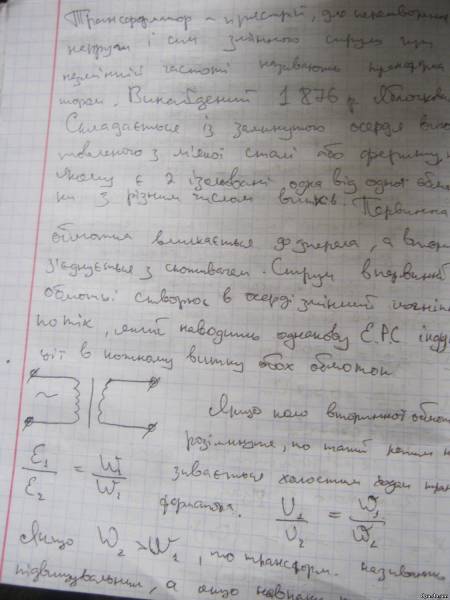 Трансформатор – пристрій, для перетворення
напруги і сили змінного струму при
незмінній частоті називають трансформа
тором. Винайдений 1876 р Яблочков
Складається із замкнутого осердя виго
товленого з м'якої сталі або фериту, н
якому є 2 ізольовані одна від одної обмо
ки з різним числом витків. Первинна
обмотка вмикається до джерела, а втори
з'єднується з споживачем. Струм в первинній
обмотці створює в осерді змінний магніт
потік, який наводить однакову Е.Р.С інду
ції в кожному витку обох обмоток
~
Якщо коло вторинної обмот
розімкнуте, то такий режим н
зивається холостим ходом тран
форматора.
ε1/ε2 = W1/W2
U1/U2 = W1/W2
Якщо W2 > W1, то трансформ. називають
підвищувальним, а якщо навпаки